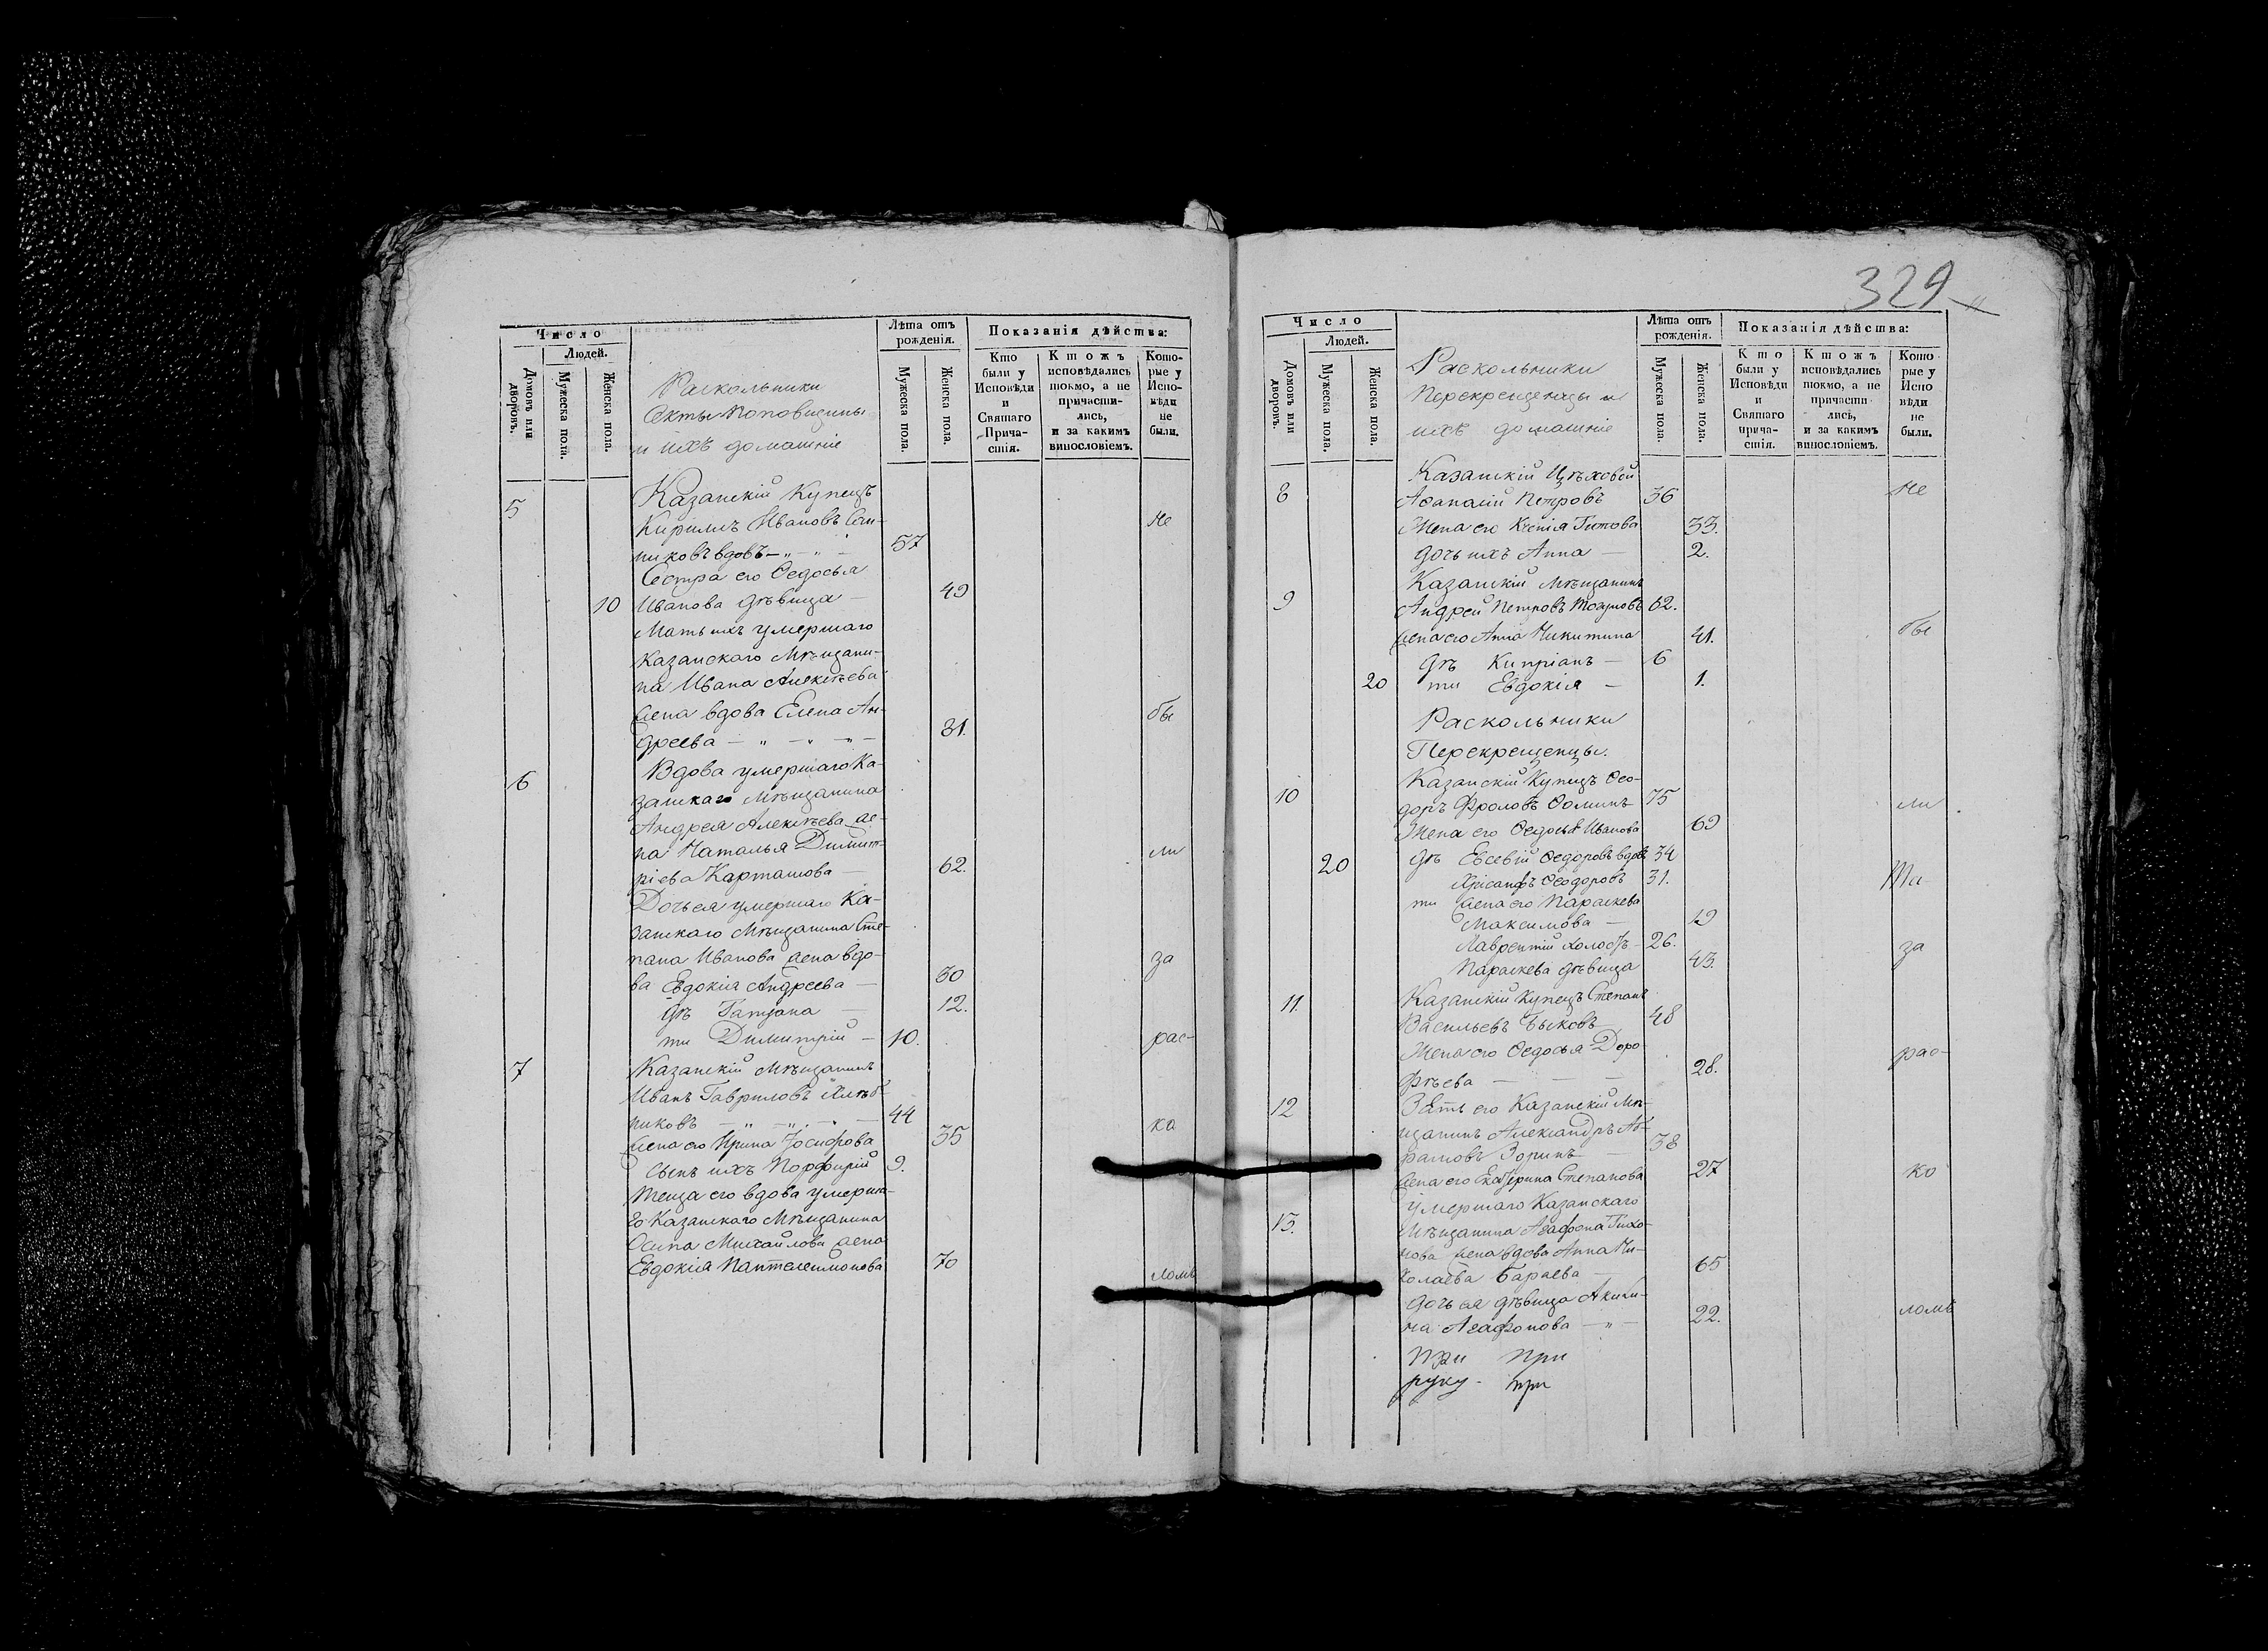 329
Число
Людей.
Домовъ или дворовъ.
Мужеска пола.
Женска пола.
Раскольники
Секты Поповщины
и ихъ домашніе
Лѣта отъ рожденія.
Мужеска пола.
Женска пола.
Показанія дѣйства:
Кто были у Исповѣди и Святаго Прича-стія.
Ктожъ исповѣдались токмо, а не причасти-лись, и за какимъ винословіемъ.
Кото-рые у Испо-вѣди не были.
5 Казанскій Купецъ
Кириллъ Ивановъ не
никовъ вдовъ - „ - „ - 57
Сестра его Ѳедосья
10 Иванова дѣвица - 49
Мать ихъ умершаго
Казанскаго Мѣщани-
на Ивана Алексѣева
жена вдова Елена Ан- бы
дреева - „ - „ - 81.
6 Вдова умершаго Ка-
занскаго Мѣщанина
Андрея Алексѣева же-
на Наталья Димит- ли
ріева Карташова - 62.
Дочь ея умершаго Ка-
занскаго Мѣщанина Сте-
пана Иванова жена вдо- за
ва Евдокія Андреева - 30
дѣ Татіана - 12.
ти Димитрій - 10. рас-
7 Казанскій Мѣщанинъ
Иванъ Гавриловъ Хлѣб-
никовъ - „ - „ - 44 ко
жена его Ирина Іосифова 35
сынъ ихъ Порфирій 9.
теща его вдова умерша-
го Казанскаго Мѣщанина
Осипа Михайлова жена
Евдокія Пантелеимонова 70 ломъ
Число
Людей.
Домовъ или дворовъ.
Мужеска пола.
Женска пола.
Раскольники
Перекрещенцы и
ихъ домашніе
Лѣта отъ рожденія.
Мужеска пола.
Женска пола.
Показанія дѣйства:
Кто были у Исповѣди и Святаго прича-стія.
Ктожъ исповѣдались токмо, а не причасти-лись, и за какимъ винословіемъ.
Кото-рые у Испо вѣди не были.
8 Казанскій Цѣховой
Аѳанасій Петровъ 36 не
Жена его Ксенія Титова 33.
дочь ихъ Анна - 2.
Казанскій Мѣщанинъ
9 Андрей Петровъ 62.
жена его Анна Никитина 41. бы
дѣ Кипріанъ - 6
20 ти Евдокія - 1.
Раскольники
Перекрещенцы.
Казанскій Купецъ Ѳео-
10 доръ Фроловъ Ѳоминъ 75 ли
Жена его Ѳедосья Иванова 69
20 дѣ Евсевій Ѳедоровъ вдовъ 34
Хрисанфъ Ѳеодоровъ 31. та
ти жена его Параскева
Максимова - 19
Лаврентій холостъ - 26. за
Параскева дѣвица 43.
11. Казанскій Купецъ Степанъ
Васильевъ Быковъ 48
Жена его Ѳедосья Доро- рас-
фѣева - - - 28.
12 Зять его Казанскій Мѣ-
щанинъ Александръ Аб-
рамовъ Зоринъ - 38
жена его Екатерина Степанова 27 ко
умершаго Казанскаго
13. Мѣщанина Агафона Тихо-
нова жена вдова Анна Ни-
колаева Бараева - 65
дочь ея дѣвица Акили-
на Агафонова - „ - 22. ломъ
при при
руку - при